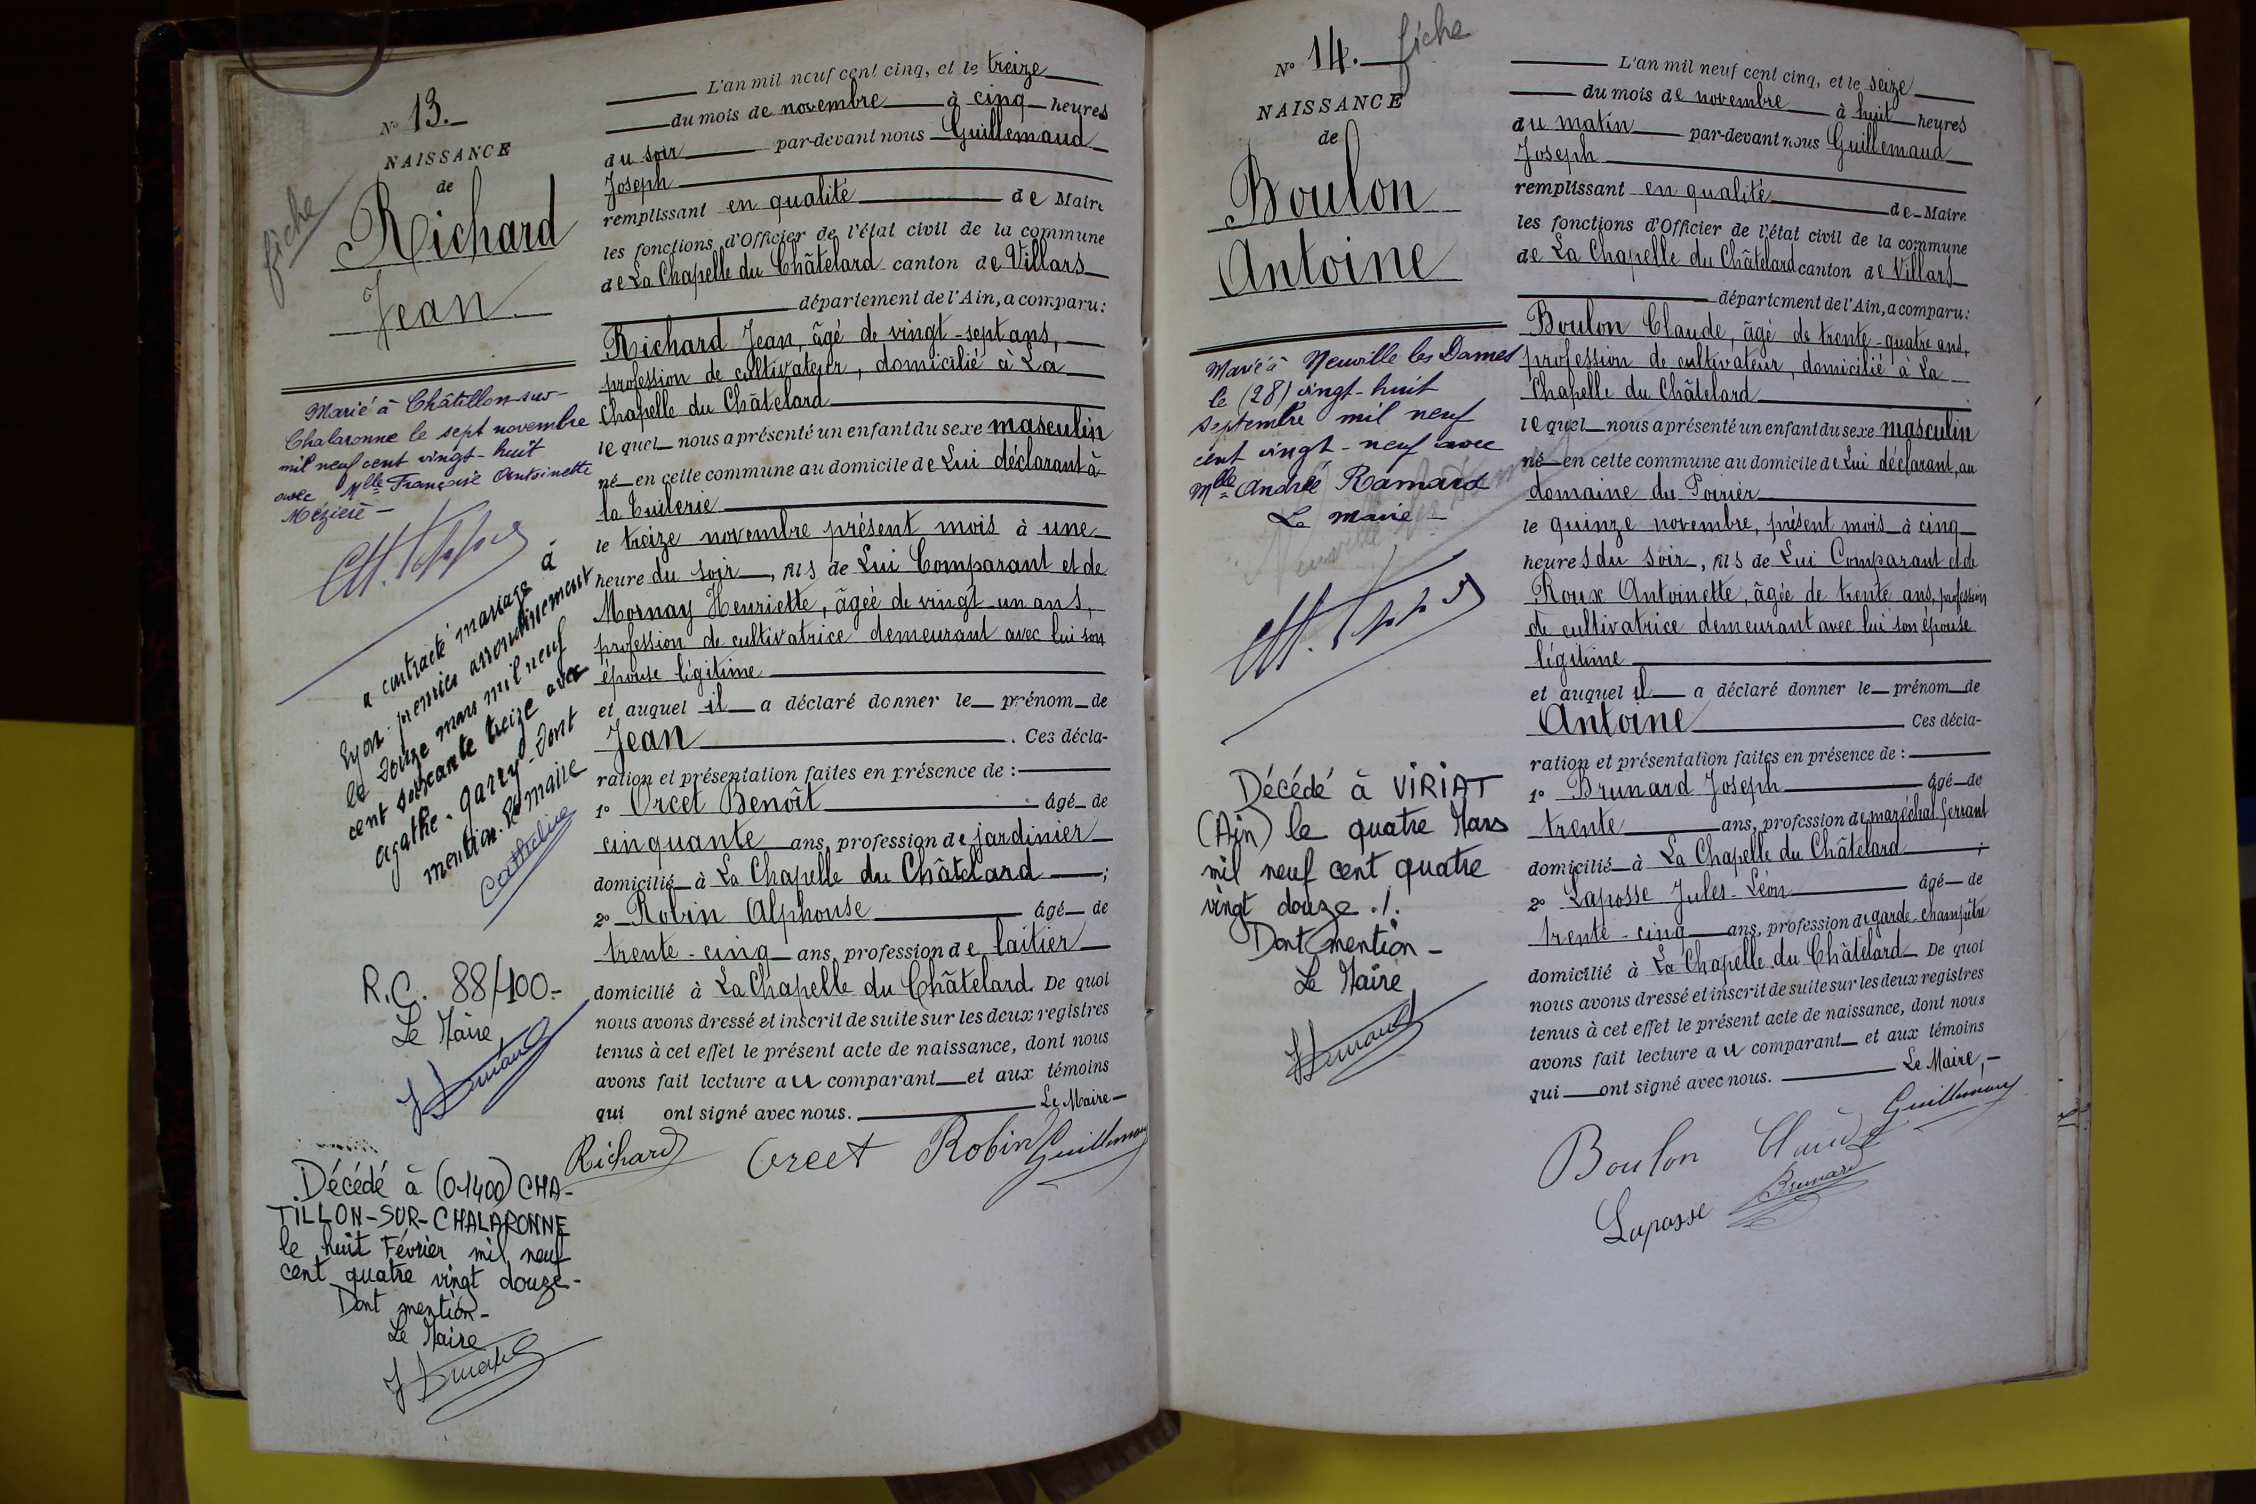 N° 13.
NAISSANCE
de
Richard
Jean
fiche
Marié à Châtillon-sur-
Chalaronne le sept novembre
mil neuf cent vingt-huit
avec Mlle Françoise Antoinette
Mézière
a contracté mariage à
Lyon premier arrondissement
le douze mars mil neuf
cent soixante treize avec
Agathe Garry. Dont
mention. Le maire
R.C. 88/400.-
Le Maire
Décédé à (01400) CHA-
TILLON-SUR-CHALARONNE
le huit Février mil neuf
cent quatre vingt douze-
Dont mention-
Le Maire
L'an mil neuf cent cinq, et le treize
du mois de novembre à cinq heures
du soir par-devant nous Guillemaud
Joseph
remplissant en qualité de Maire
les fonctions d'Officier de l'état civil de la commune
de La Chapelle du Châtelard canton de Villars
département de l'Ain, a comparu:
Richard Jean, âgé de vingt-sept ans,
profession de cultivateur, domicilié à La
Chapelle du Châtelard
lequel nous a présenté un enfant du sexe masculin
né en cette commune au domicile de Lui déclarant à
la Tuilerie
le treize novembre présent mois à une
heure du soir, fils de Lui Comparant et de
Mornay Henriette, âgée de vingt-un ans,
profession de cultivatrice demeurant avec lui son
épouse légitime
et auquel il a déclaré donner le prénom de
Jean. Ces décla-
ration et présentation faites en présence de :
1° Orcet Benoît âgé de
cinquante ans, profession de jardinier
domicilié à La Chapelle du Châtelard ;
2° Robin Alphonse âgé de
trente-cinq ans, profession de laitier
domicilié à La Chapelle du Châtelard. De quoi
nous avons dressé et inscrit de suite sur les deux registres
tenus à cet effet le présent acte de naissance, dont nous
avons fait lecture au comparant et aux témoins
qui ont signé avec nous. Le Maire
Richard Orcet Robin Guillemaud
N° 14. fiche
NAISSANCE
de
Boulon
Antoine
Marié à Neuville les Dames
le (28) vingt-huit
septembre mil neuf
cent vingt-neuf avec
Mlle Andrée Ramard
Le maire
Décédé à VIRIAT
(Ain) le quatre Mars
mil neuf cent quatre
vingt douze ./.
Dont mention-
Le Maire
L'an mil neuf cent cinq, et le seize
du mois de novembre à huit heures
du matin par-devant nous Guillemaud
Joseph
remplissant en qualité de Maire
les fonctions d'Officier de l'état civil de la commune
de La Chapelle du Châtelard canton de Villars
département de l'Ain, a comparu:
Boulon Claude, âgé de trente-quatre ans,
profession de cultivateur, domicilié à La
Chapelle du Châtelard
lequel nous a présenté un enfant du sexe masculin
né en cette commune au domicile de Lui déclarant, au
domaine du Poirier
le quinze novembre, présent mois à cinq
heures du soir, fils de Lui Comparant et de
Roux Antoinette, âgée de trente ans, profession
de cultivatrice demeurant avec lui son épouse
légitime
et auquel il a déclaré donner le prénom de
Antoine Ces décla-
ration et présentation faites en présence de :
1° Brunard Joseph âgé de
trente ans, profession de maréchal ferrant
domicilié à La Chapelle du Châtelard ;
2° Laposse Jules-Léon âgé de
trente-cinq ans, profession de garde-champêtre
domicilié à La Chapelle du Châtelard De quoi
nous avons dressé et inscrit de suite sur les deux registres
tenus à cet effet le présent acte de naissance, dont nous
avons fait lecture au comparant et aux témoins
qui ont signé avec nous. Le Maire,
Boulon Claude Guillemaud
Laposse Brunard